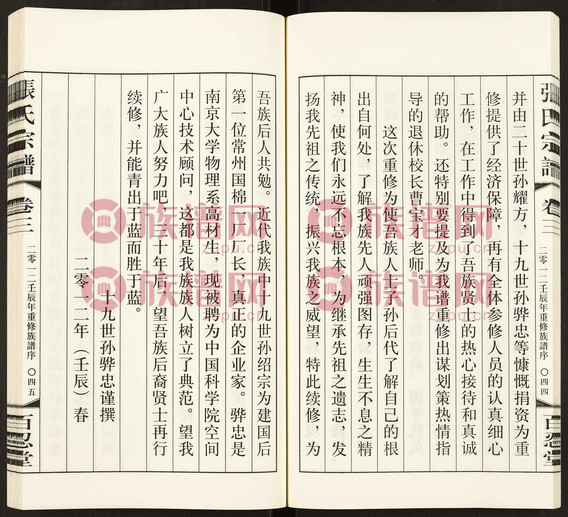 并由二十世孙耀方，十九世孙骅忠等慷慨捐资为重
修提供了经济保障，再有全体参修人员的认真细心
工作，在工作中得到了吾族贤士的热心接待和真诚
的帮助。还特别要提及为我谱重修出谋划策热情指
导的退休校长曹宝才老师。
这次重修为使吾族人士子孙后代了解自己的根
出自何处，了解我族先人顽强图存，生生不息之精
神，使我们永远不忘根本，为继承先祖之遗志，发
扬我先祖之传统，振兴我族之威望，特此续修，为
張氏宗譜
卷三
二零一二壬辰年重修族譜序
〇四四
百忍堂
吾族后人共勉。近代我族中十九世孙绍宗为建国后
第一位常州国棉一厂厂长，真正的企业家。骅忠是
南京大学物理系高材生，现被聘为中国科学院空间
中心技术顾问，这都是我族族人树立了典范。望我
广大族人努力吧，三十年后，望吾族后裔贤士再行
续修，并能青出于蓝而胜于蓝。
十九世孙骅忠谨撰
二零一二年（壬辰）春
張氏宗譜
卷三
二零一二壬辰年重修族譜序
〇四五
百忍堂
族谱网
zpu.cn
族谱网
族谱网
zpu.cn
族谱网